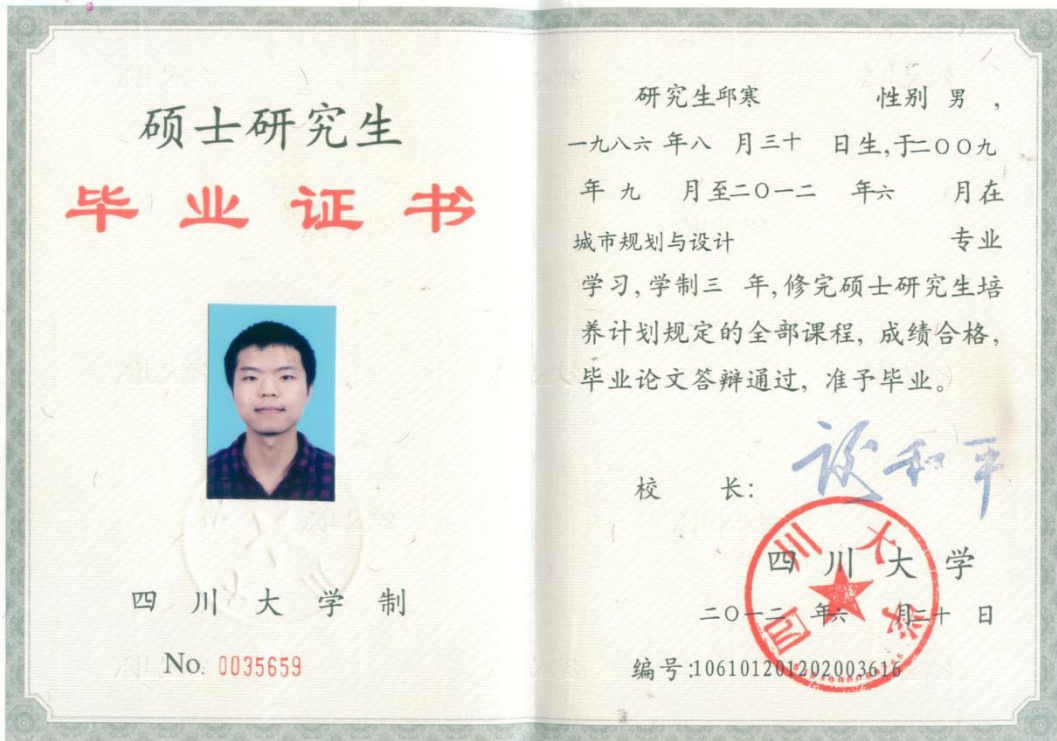 硕士研究生
毕业证书
四川大学制
No. 0035659
研究生邱寒 性别 男 ,
一九八六 年八 月三十 日生,于二〇〇九
年 九 月至二〇一二 年六 月在
城市规划与设计 专业
学习,学制三 年,修完硕士研究生培
养计划规定的全部课程, 成绩合格,
毕业论文答辩通过, 准予毕业。
校 长: 谢和平
四川大学
四 川 大 学
二〇一二 年六 月三十 日
编号:106101201202003616